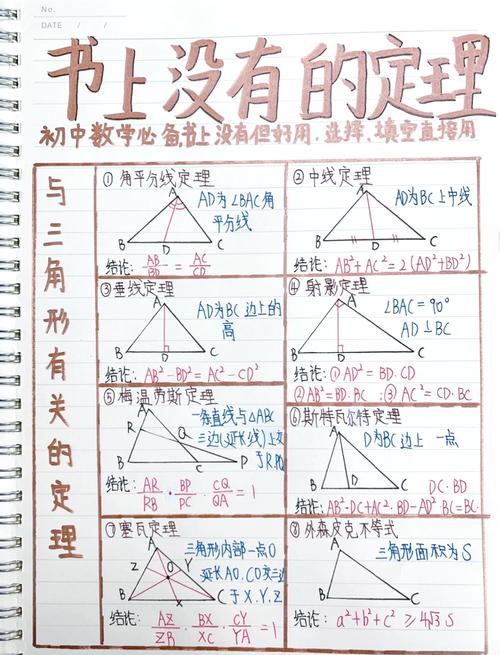 No.
DATE / /
书上没有的定理
初中数学必备,书上没有但好用.选择、填空直接用
与三角形有关的定理
① 角平分线定理
A
AD为∠BAC角
平分线
B D C
结论: AB/BD = AC/CD
② 中线定理
A
AD为BC上中线
B D C
结论: AB²+AC²=2(AD²+BD²)
③ 垂线定理
A
AD为BC边上的
高
B D C
结论: AB²-BD²=AC²-CD²
④ 射影定理
A
∠BAC=90°
AD⊥BC
B D C
结论:①AD²=BD.CD
②AB²=BD.BC ;③AC²=CD.BC
⑤ 梅涅劳斯定理
A
一条直线与△ABC
R
三边(延长线)上交
Q
于R.P.Q
B C P
结论: AR/RB · BP/PC · CQ/QA =1
⑥ 斯特瓦尔特定理
A
D为BC边上一点
B D C
DC·BD
结论:AB²·DC+AC²·BD-AD²·BC=BC·
⑦ 塞瓦定理
A
三角形内部一点O
Z O Y
延长AO.CO交三边
于X.Y.Z
B X C
结论: AZ/ZB · BX/XC · CY/YA =1
⑧ 外森皮克不等式
A
三角形面积为S
B C
结论: a²+b²+c² ≥4√3 S